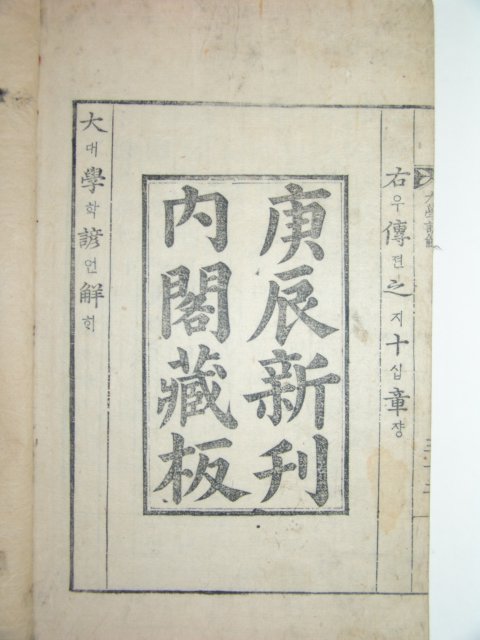 右우傳뎐之지十십章쟝
庚辰新刊
内閣藏板
大대學학諺언解ᄒᆡ